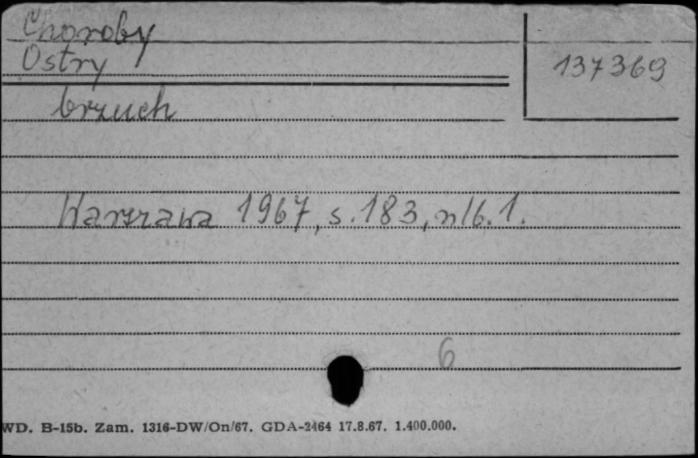 Choroby
Ostry
137369
brzuch
Warszawa 1967, s. 183, nlb. 1.
6
WD. B-15b. Zam. 1316-DW/On/67. GDA-2464 17.8.67. 1.400.000.